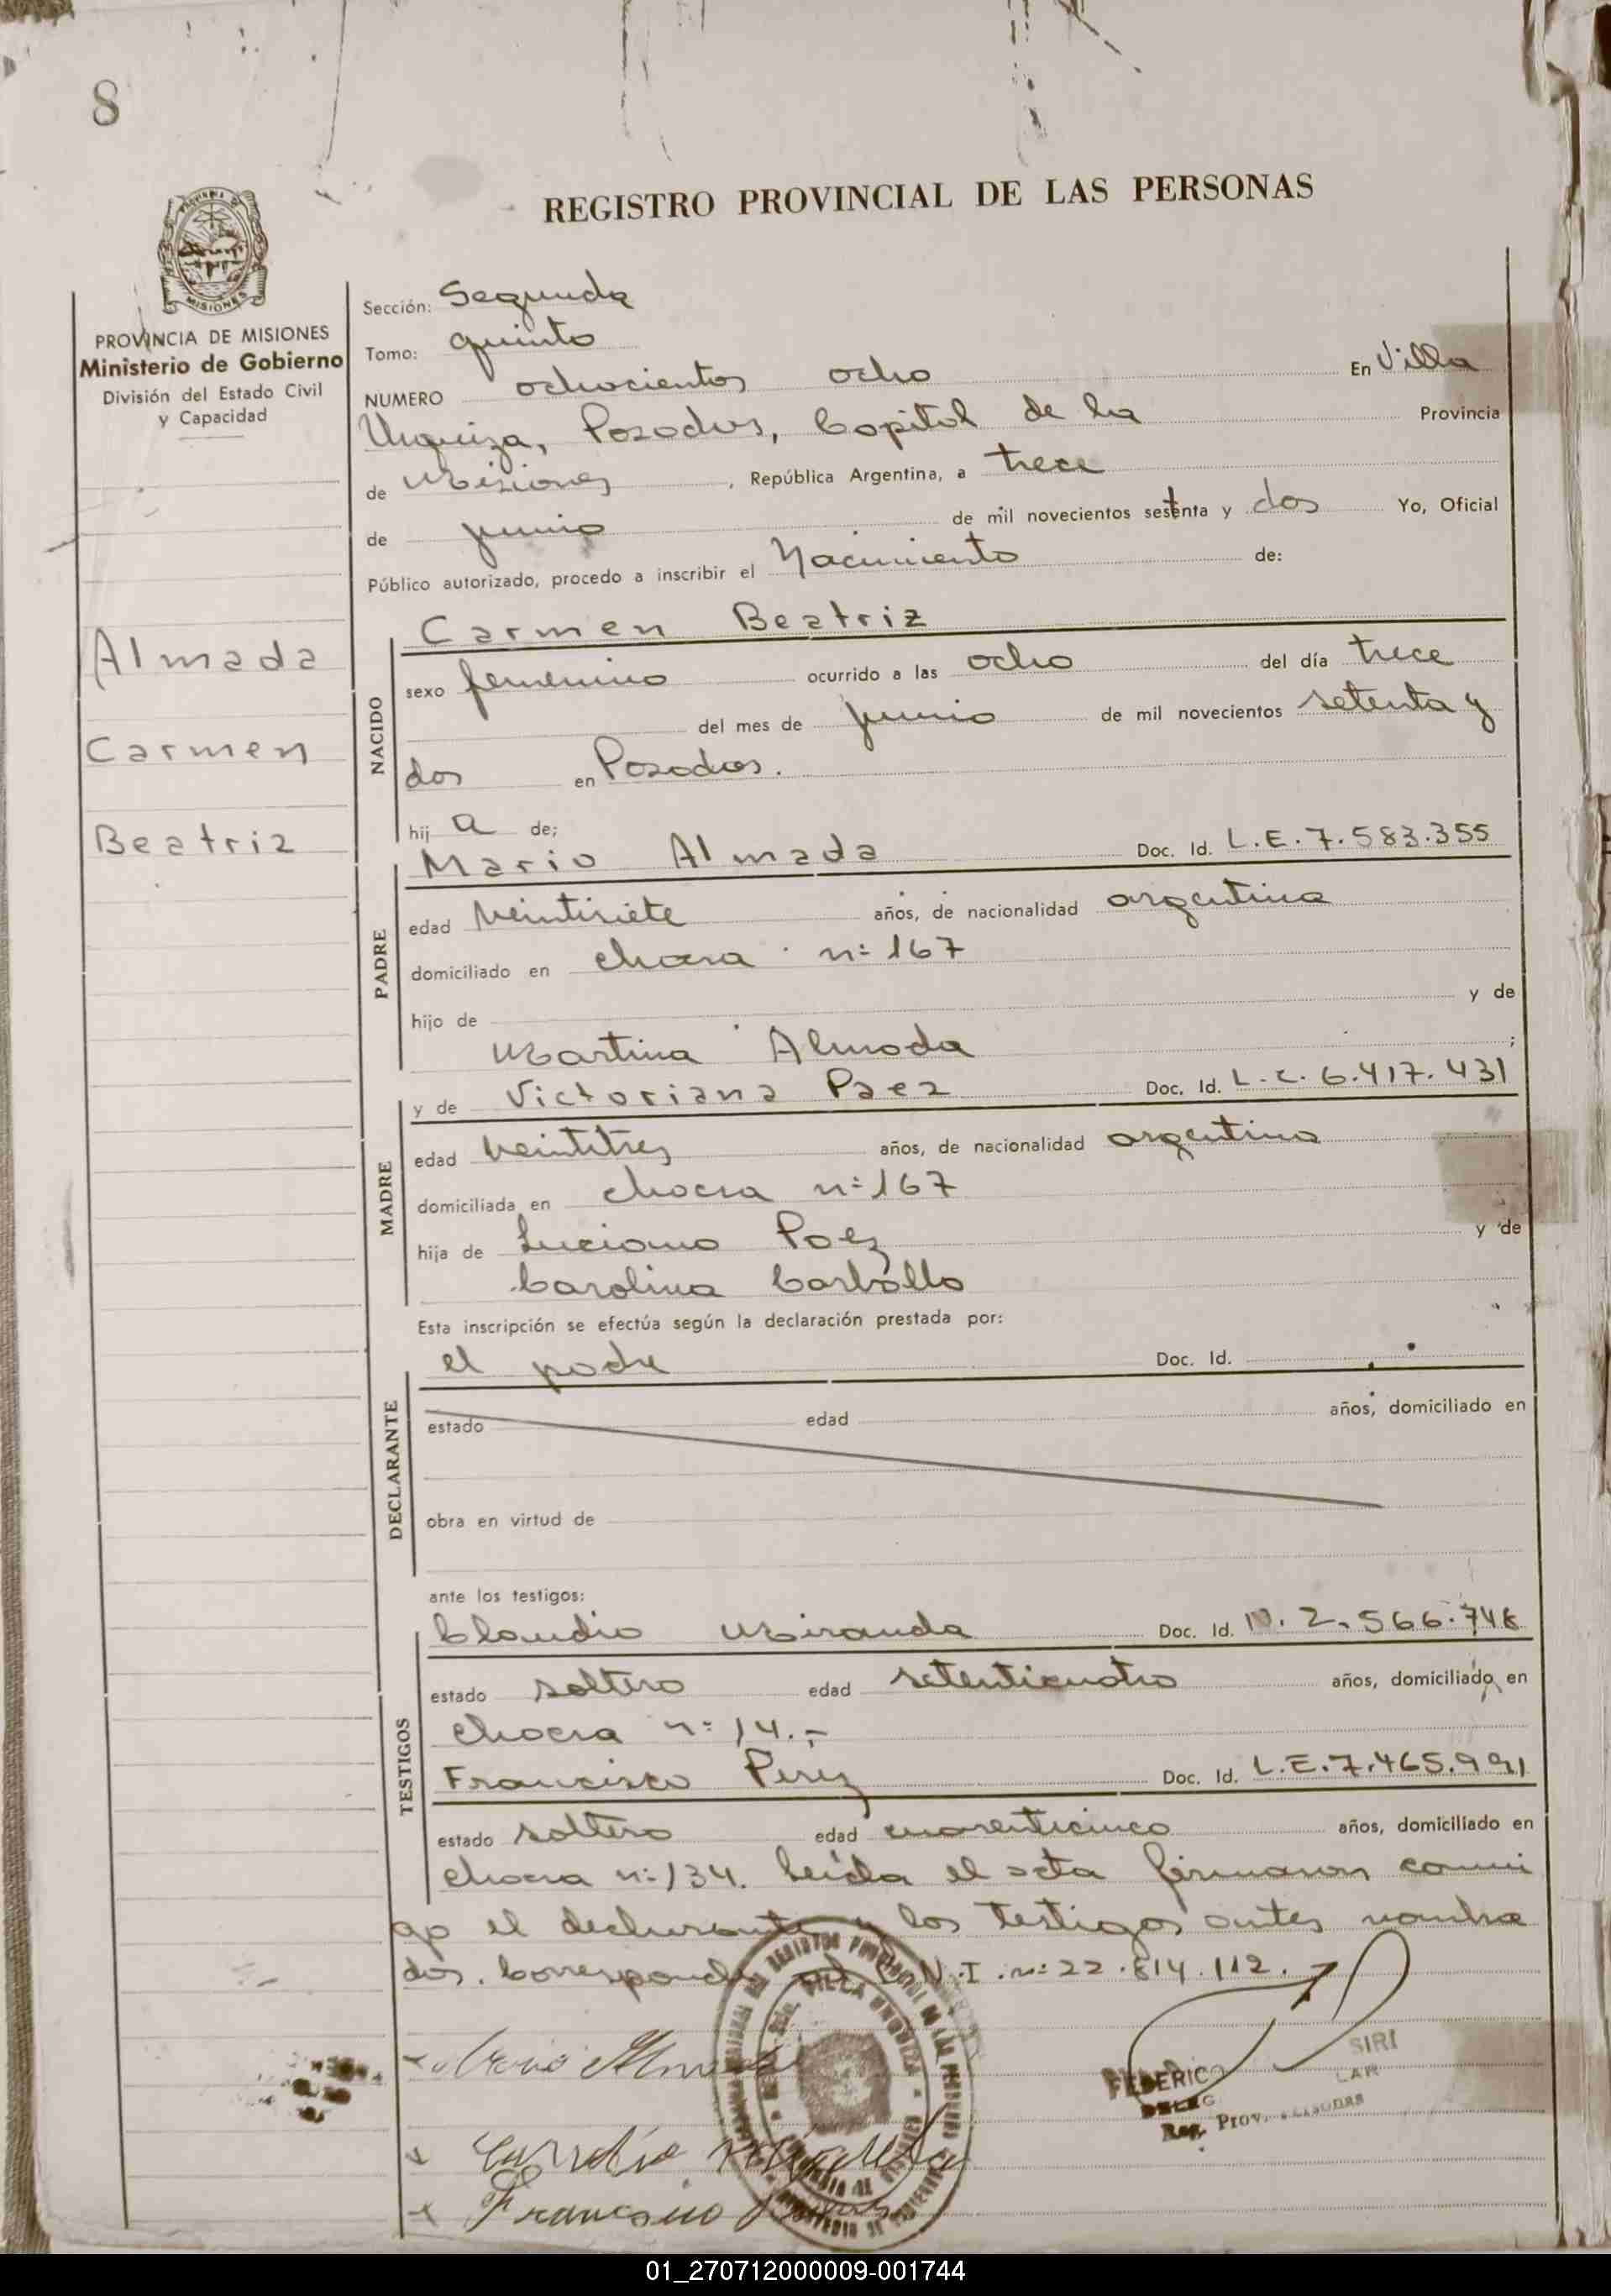 8
REGISTRO PROVINCIAL DE LAS PERSONAS
MISIONES
PROVINCIA DE MISIONES
Ministerio de Gobierno
División del Estado Civil
y Capacidad
Sección: Segunda
Tomo: quinto
NUMERO ochocientos ocho En Villa
Urquiza, Posadas, Capital de la Provincia
de Misiones, República Argentina, a trece
de junio de mil novecientos setenta y dos Yo, Oficial
Público autorizado, procedo a inscribir el Nacimiento de:
Almada
Carmen
Beatriz
NACIDO
Carmen Beatriz
sexo femenino ocurrido a las ocho del día trece
del mes de junio de mil novecientos setenta y
dos en Posadas.
hij a de;
PADRE
Mario Almada Doc. Id. L.E. 7.583.355
edad veintisiete años, de nacionalidad argentina
domiciliado en chacra n: 167
hijo de y de
Martina Almada ;
MADRE
y de Victoriana Paez Doc. Id. L.C. 6.417.431
edad veintitres años, de nacionalidad argentina
domiciliada en chacra n: 167
hija de Luciano Paez y de
Carolina Carballo
Esta inscripción se efectúa según la declaración prestada por:
DECLARANTE
el padre Doc. Id.
estado edad años, domiciliado en
obra en virtud de
ante los testigos:
TESTIGOS
Claudio Miranda Doc. Id. 2.566.748
estado soltero edad setenticuatro años, domiciliado en
chacra n: 14.-
Francisco Perez Doc. Id. L.E. 7.465.991
estado soltero edad cuarenticinco años, domiciliado en
chacra n: 134. Leída el acta firmaron conmi
go el declarante y los testigos antes nombra
dos. Corresponde D.N.I. n: 22.814.112.
Mario Almada
VILLA URQUIZA
FEDERICO SIRI
DELEG LAR
Reg. Prov. Personas
Francisco
01_270712000009-001744